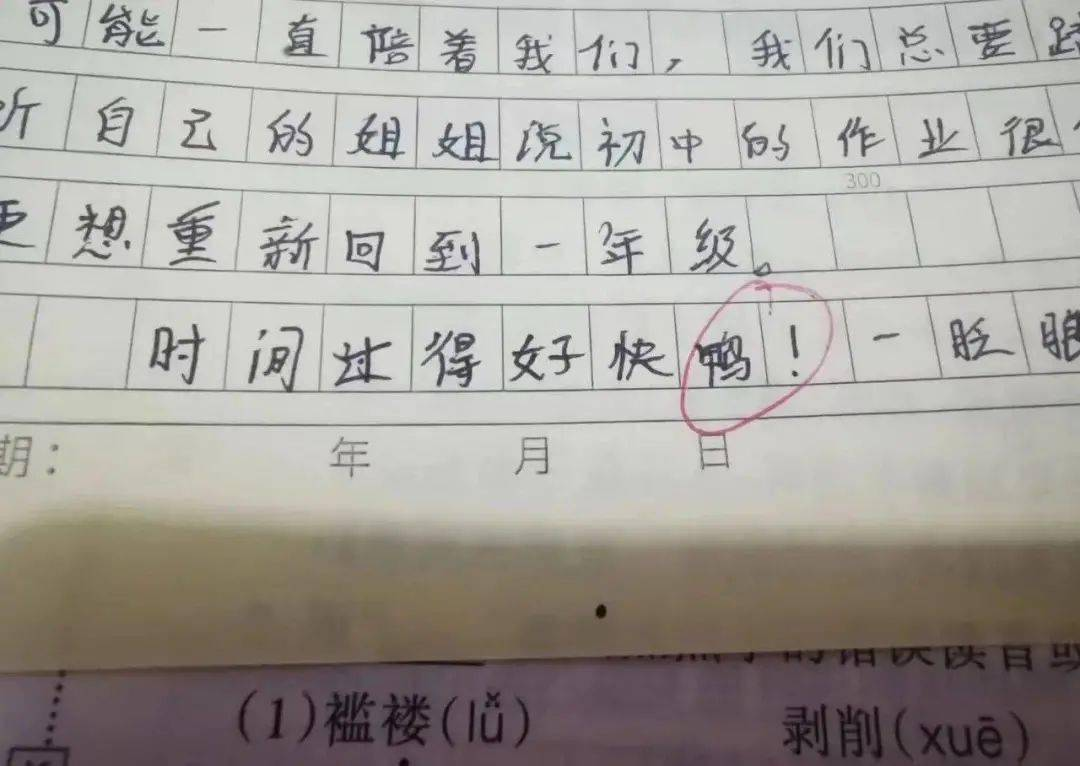 可能一直陪着我们，我们总要
听自己的姐姐说初中的作业很
300
更想重新回到一年级。
时间过得好快鸭！一眨眼
期： 年 月 日
的错误读音或
(1)褴褛(lǚ) 剥削(xuē)